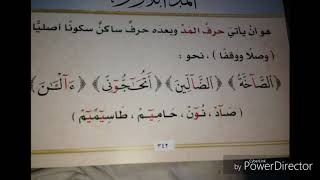 هو أن يأتيَ حرفُ المدّ وبعده حرفٌ ساكنٌ سكونًا أصليًا
(وصلًا ووقفًا) ، نحو :
﴿ٱلصَّآخَّةُ﴾ ﴿ٱلضَّآلِّينَ﴾ ﴿أَتُحَٰٓجُّوٓنِّي﴾ ﴿ءَآلْـَٰٔنَ﴾
( صَآدْ ، نُوٓنْ ، حَامِيٓمْ ، طَاسِيٓمِّيٓمْ )
٣٤٢
by PowerDirector